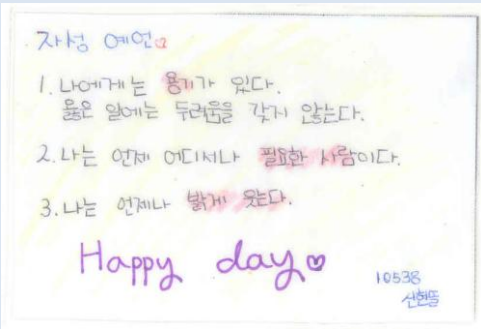 자성 예언♡
1. 나에게는 용기가 있다.
옳은 일에는 두려움을 갖지 않는다.
2. 나는 언제 어디서나 필요한 사람이다.
3. 나는 언제나 밝게 웃는다.
Happy day♡
10538
신현뜰